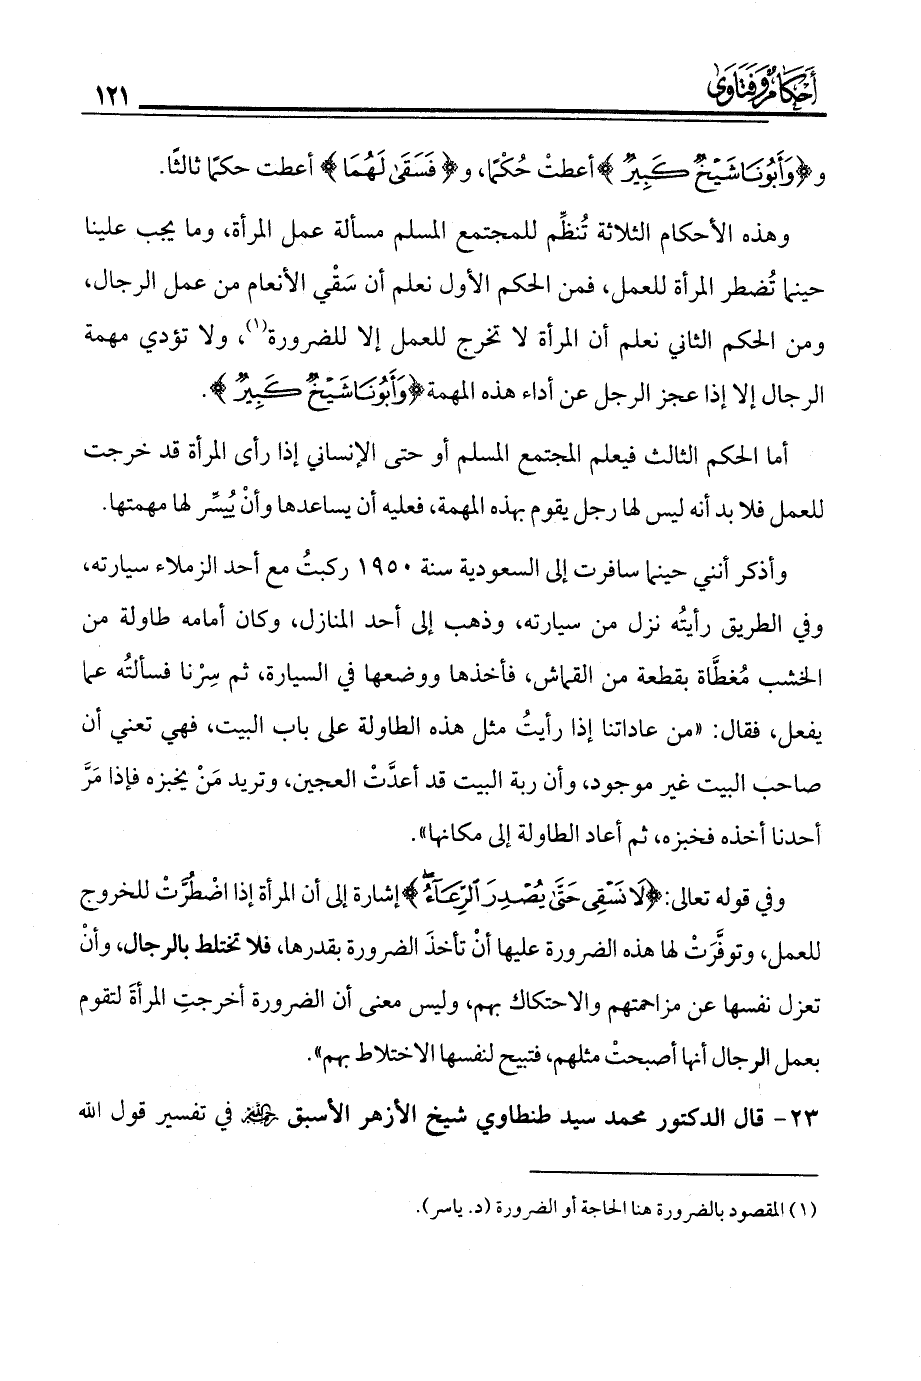 أحكام وفتاوى
١٢١
و﴿وَأَبُونَا شَيْخٌ كَبِيرٌ﴾ أعطتْ حُكْمًا، و﴿فَسَقَىٰ لَهُمَا﴾ أعطت حكمًا ثالثًا.
وهذه الأحكام الثلاثة تُنظِّم للمجتمع المسلم مسألة عمل المرأة، وما يجب علينا
حينما تُضطر المرأة للعمل، فمن الحكم الأول نعلم أن سَقْي الأنعام من عمل الرجال،
ومن الحكم الثاني نعلم أن المرأة لا تخرج للعمل إلا للضرورة(١)، ولا تؤدي مهمة
الرجال إلا إذا عجز الرجل عن أداء هذه المهمة ﴿وَأَبُونَا شَيْخٌ كَبِيرٌ﴾.
أما الحكم الثالث فيعلم المجتمع المسلم أو حتى الإنساني إذا رأى المرأة قد خرجت
للعمل فلا بد أنه ليس لها رجل يقوم بهذه المهمة، فعليه أن يساعدها وأنْ يُيسِّر لها مهمتها.
وأذكر أنني حينما سافرت إلى السعودية سنة ١٩٥٠ ركبتُ مع أحد الزملاء سيارته،
وفي الطريق رأيتُه نزل من سيارته، وذهب إلى أحد المنازل، وكان أمامه طاولة من
الخشب مُغطَّاة بقطعة من القماش، فأخذها ووضعها في السيارة، ثم سِرْنا فسألتُه عما
يفعل، فقال: «من عاداتنا إذا رأيتُ مثل هذه الطاولة على باب البيت، فهي تعني أن
صاحب البيت غير موجود، وأن ربة البيت قد أعدَّتْ العجين، وتريد مَنْ يخبزه فإذا مَرَّ
أحدنا أخذه فخبزه، ثم أعاد الطاولة إلى مكانها».
وفي قوله تعالى: ﴿لَا نَسْقِى حَتَّىٰ يُصْدِرَ ٱلرِّعَآءُ﴾ إشارة إلى أن المرأة إذا اضْطُرَّتْ للخروج
للعمل، وتوفَّرَتْ لها هذه الضرورة عليها أنْ تأخذَ الضرورة بقدرها، فلا تختلط بالرجال، وأنْ
تعزل نفسها عن مزاحمتهم والاحتكاك بهم، وليس معنى أن الضرورة أخرجتِ المرأةَ لتقوم
بعمل الرجال أنها أصبحتْ مثلهم، فتبيح لنفسها الاختلاط بهم».
٢٣- قال الدكتور محمد سيد طنطاوي شيخ الأزهر الأسبق رحمه الله في تفسير قول الله
(١) المقصود بالضرورة هنا الحاجة أو الضرورة (د. ياسر).